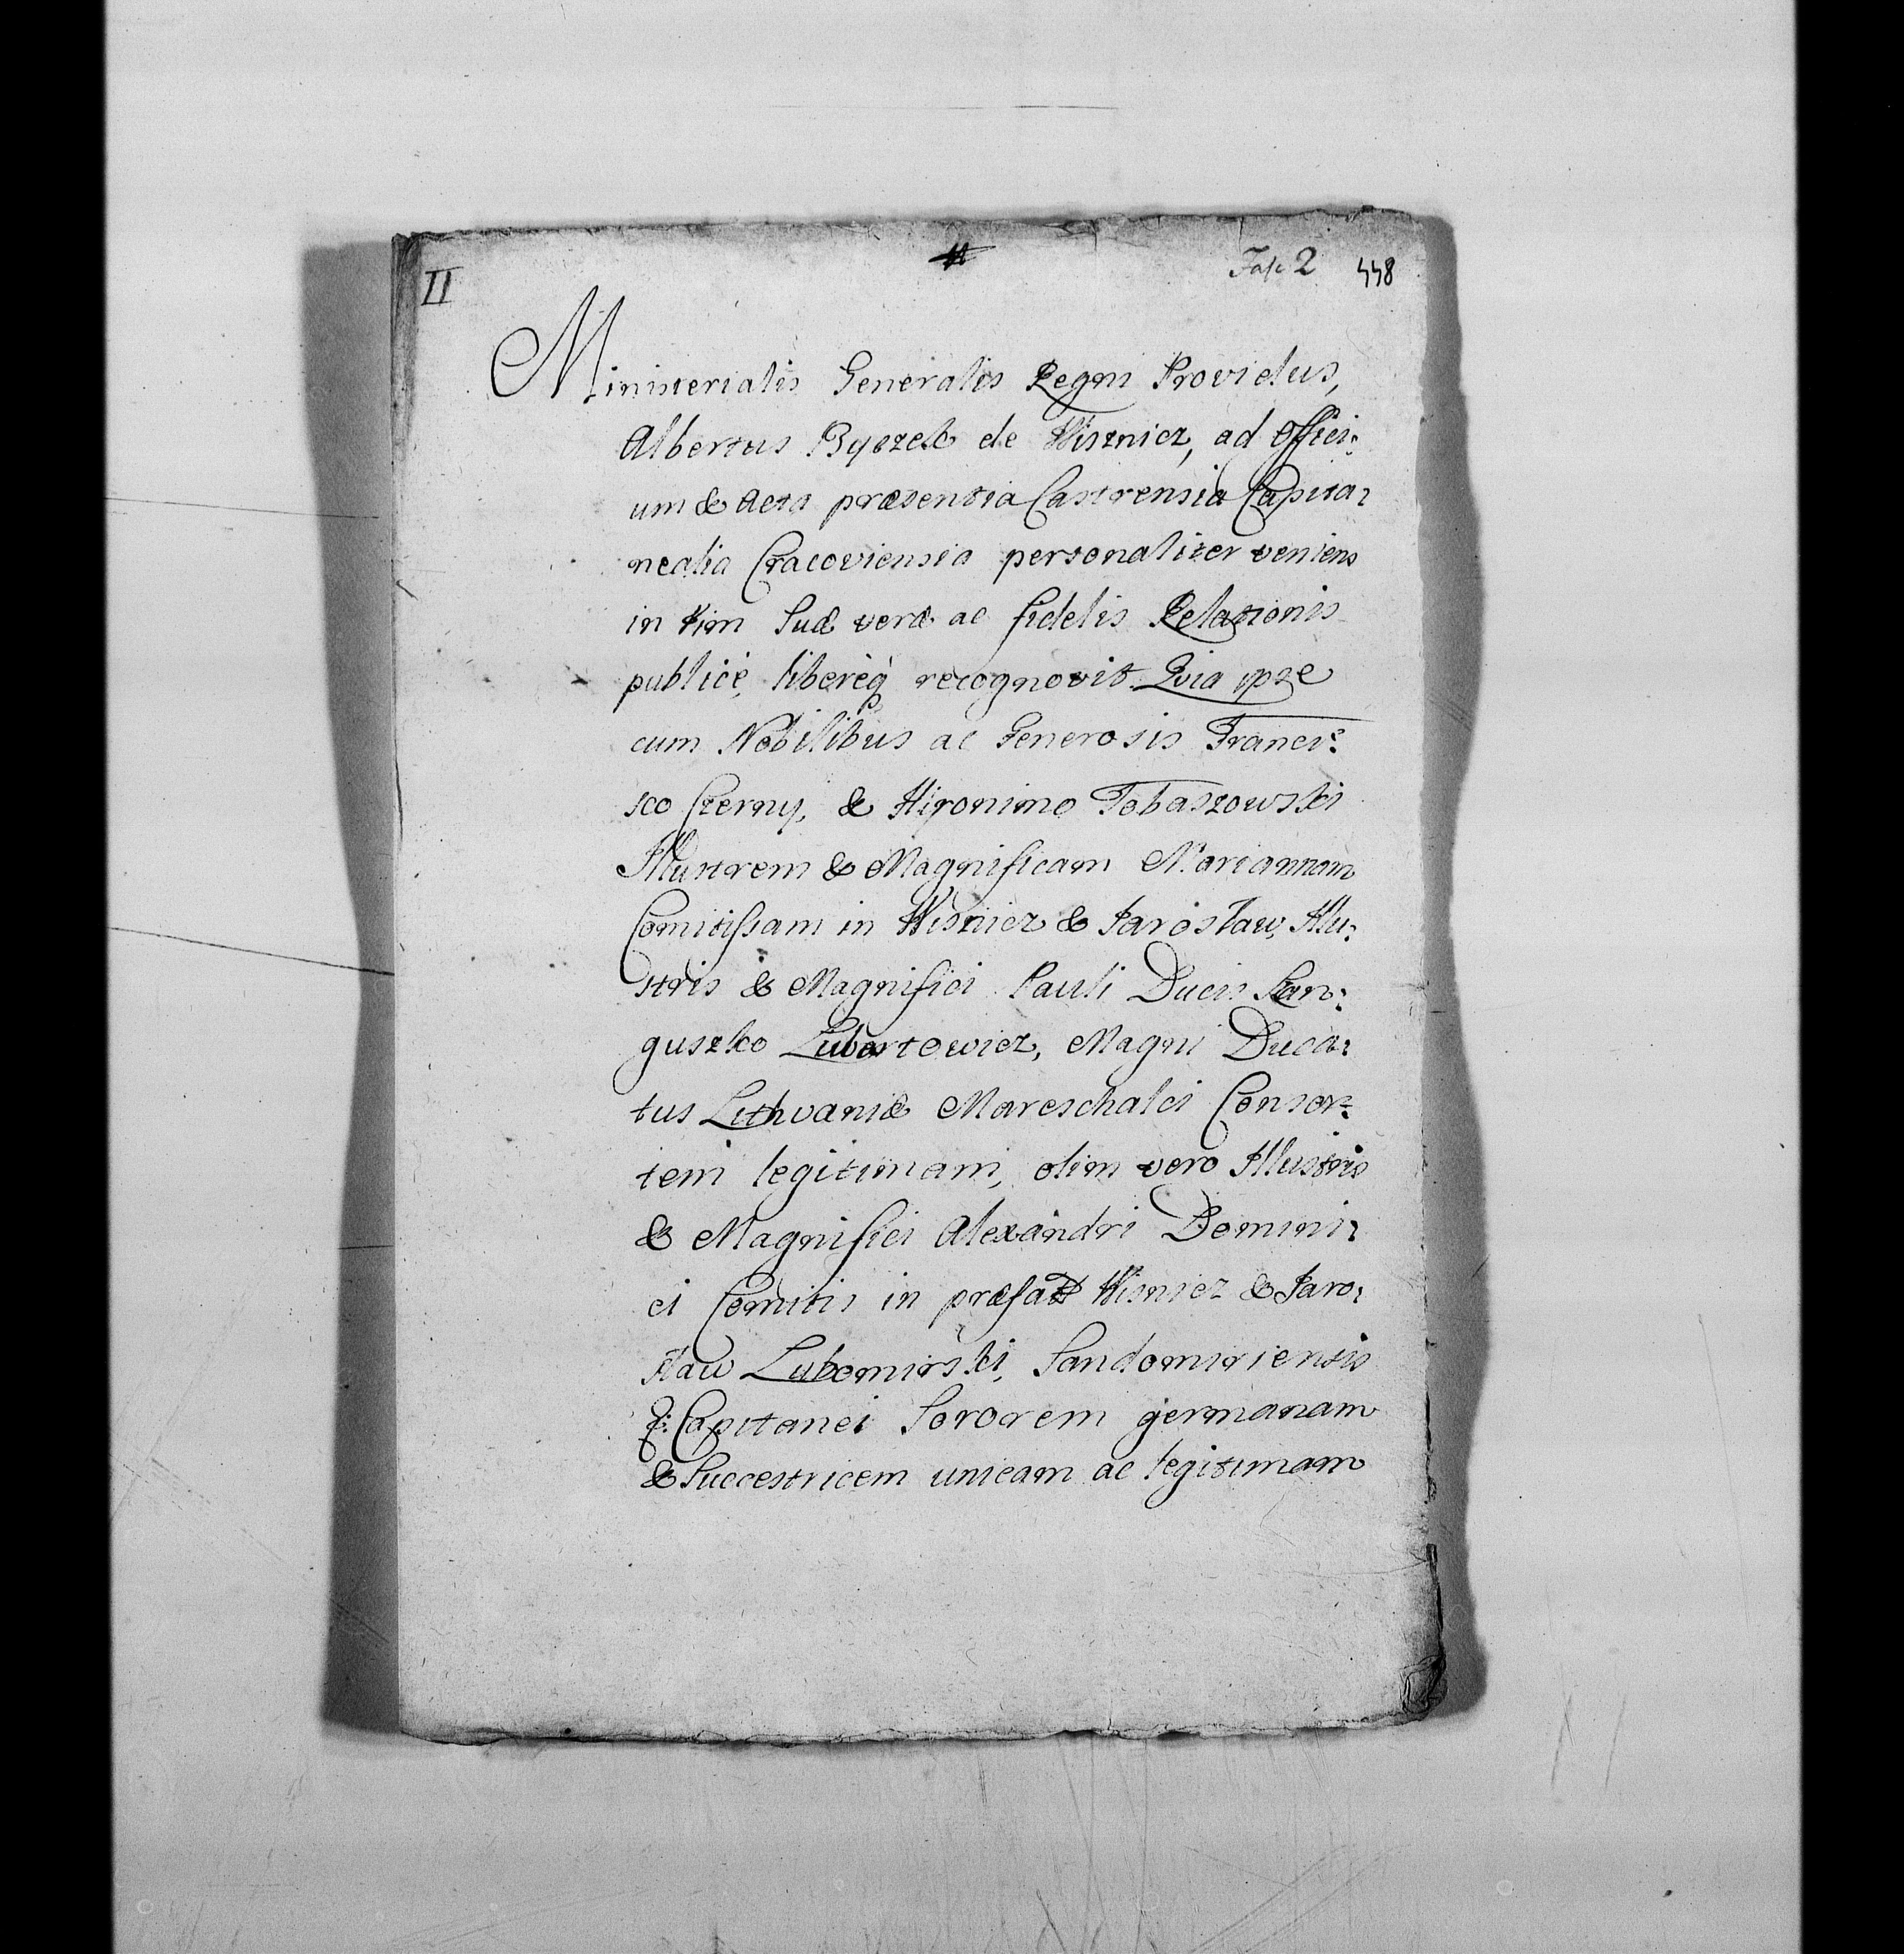 II
Fasc 2 448
Ministerialis Generalis Regni Providus,
Albertus de Wisznicz, ad Offici:
um & Acta præsentia Castrensia Capita:
nealia Cracoviensia personaliter veniens
in Vim Suæ veræ ac fidelis Relationis
publicè, liberèq recognovit. Quia ipse
cum Nobilibus ac Generosis Franci:
sco Czerny, & Hironimo Tobaszowski
Illustrem & Magnificam Mariannam
Comitissam in Wisnicz & Jarosław, Illu:
stris & Magnifici Pauli Ducis San:
guszko Lubartowicz, Magni Duca:
tus Lithvaniæ Mareschalci Consor:
tem legitimam, olim vero Illustris
& Magnifici Alexandri Domini:
ci Comitis in præfat Wisnicz & Jaro:
sław Lubomirski, Sandomiriensis
&: Capitanei Sororem germanam
& Successtricem unicam ac legitimam